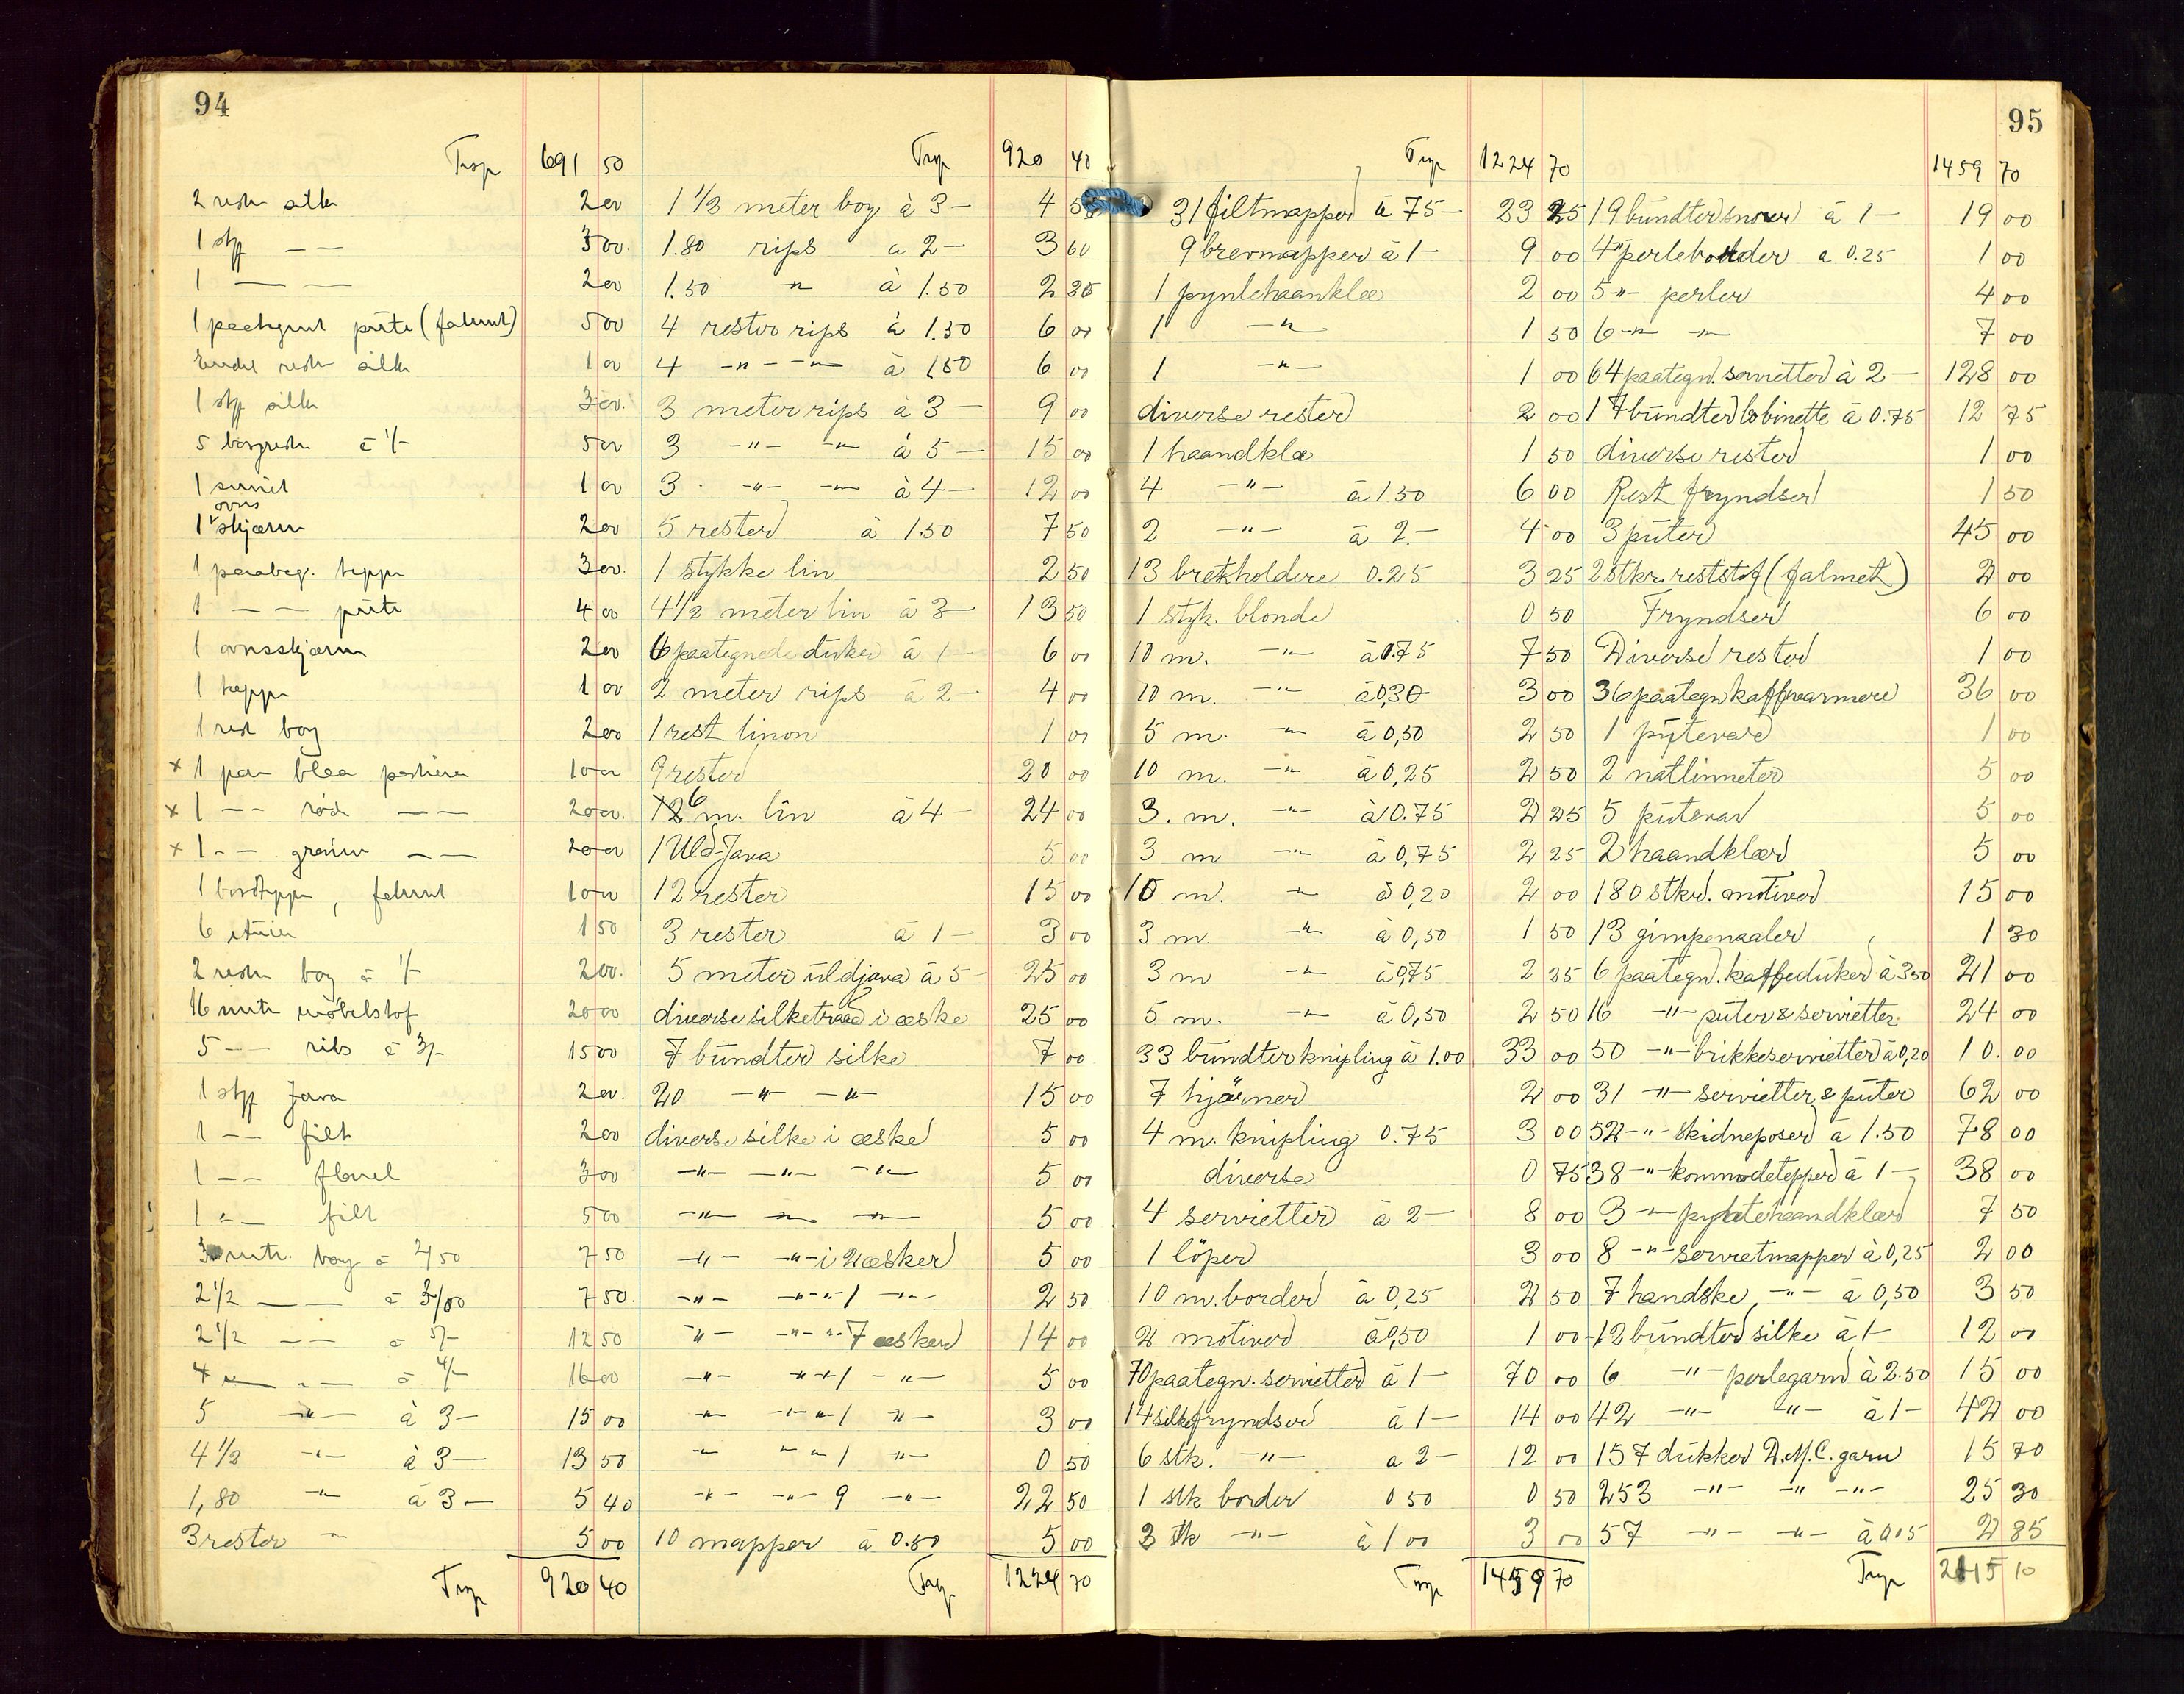 94
Trsp 691 50
2 rester silke 2 00
1 stk — — 3 00
1 — — 2 00
1 paategnet pute (falmet) 5 00
rester silke 1 00
1 stk silke 3 00
5 boyrester à 1/- 5 00
1 serviet 1 00
1 ovns skjærm 2 00
1 paabeg. teppe 3 00
1 — — pute 4 00
1 ovnsskjærm 2 00
1 teppe 1 00
1 rest boy 2 00
x 1 par blaa portierer 10 00
x 1 — — røde — — 20 00
x 1 - - grønne — — 20 00
1 bordteppe, falmet 10 00
6 etuier 1 50
2 rester boy à 1/- 2 00
16 mtr møbelstof 20 00
5 — — ribs à 3/- 15 00
1 stk Java 2 00
1 — — filt 2 00
1 — — flanel 3 00
1 — — filt 5 00
3 mtr. boy à 2/50 7 50
2 1/2 — — à 3/00 7 50
2 1/2 — — à 5/- 12 50
4 — — à 4/- 16 00
5 -"- à 3- 15 00
4 1/2 -"- à 3- 13 50
1,80 -"- à 3- 5 40
3 rester -"- 5 00
Trsp 920 40
Trsp 920 40
1 1/2 meter boy à 3- 4 50
1.80 rips a 2- 3 60
1.50 -"- à 1.50 2 25
4 rester rips à 1.50 6 00
4 -"- -"- à 1 50 6 00
3 meter rips à 3- 9 00
3 -"- -"- à 5- 15 00
3 -"- -"- à 4- 12 00
5 rester à 1.50 7 50
1 stykke lin 2 50
4 1/2 meter lin à 3- 13 50
6 paategnede duker à 1- 6 00
2 meter rips à 2- 4 00
1 rest linon 1 00
9 rester 20 00
6 m. lin à 4- 24 00
1 Uld-Java 5 00
12 rester 15 00
3 rester à 1- 3 00
5 meter uldjava à 5- 25 00
diverse silketraad i æske 25 00
7 bundter silke 7 00
20 -"- -"- 15 00
diverse silke i æske 5 00
-"- -"- -"- 5 00
-"- -"- -"- 5 00
-"- -"- i 2 æsker 5 00
-"- -"- 1 -"- 2 50
-"- -"- 7 æsker 14 00
-"- -"- 1 -"- 5 00
-"- -"- 1 -"- 3 00
-"- -"- 1 -"- 0 50
-"- -"- 9 -"- 22 50
10 mapper à 0.50 5 00
Trsp 1224 70
95
Trsp 1224 70
31 filtmapper à 75- 23 25
9 brevmapper à 1- 9 00
1 pyntehaanklæ 2 00
1 -"- 1 50
1 -"- 1 00
diverse rester 2 00
1 haandklæ 1 50
4 -"- à 1 50 6 00
2 -"- à 2.- 4 00
13 brekholdere 0.25 3 25
1 styk. blonde 0 50
10 m. -"- à 0.75 7 50
10 m. -"- à 0,30 3 00
5 m. -"- à 0,50 2 50
10 m. -"- à 0,25 2 50
3. m. -"- à 0.75 2 25
3 m -"- à 0,75 2 25
10 m. -"- à 0,20 2 00
3 m. -"- à 0,50 1 50
3 m -"- à 0,75 2 25
5 m. -"- à 0,50 2 50
33 bundter knipling à 1.00 33 00
7 hjørner 2 00
4 m. knipling 0.75 3 00
diverse 0 75
4 servietter à 2- 8 00
1 löper 3 00
10 m. border à 0,25 2 50
2 motiver à 0,50 1 00
70 paategn. servietter à 1- 70 00
14 silkefryndser à 1- 14 00
6 stk. -"- a 2- 12 00
1 stk border 0 50 0 50
3 stk -"- à 1 00 3 00
Trsp 1459 70
1459 70
19 bundter snorer à 1- 19 00
4 -"- perleborder a 0.25 1 00
5 -"- perler 4 00
6 -"- -"- 7 00
64 paategn. servietter à 2- 128 00
17 bundter bobinette à 0.75 12 75
diverse rester 1 00
Rest fryndser 1 50
3 puter 45 00
2 stkr. reststof (falmet) 2 00
Fryndser 6 00
Diverse rester 1 00
36 paategn kaffevarmere 36 00
1 putevar 1 00
2 natlinneter 5 00
5 putevar 5 00
2 haandklær 5 00
180 stkr. motiver 15 00
13 gimpenaaler 1 30
6 paategn. kaffeduker à 3 50 21 00
16 -"- puter & servietter 24 00
50 -"- brikkeservietter à 0,20 10.00
31 -"- servietter & puter 62 00
52 -"- skidneposer à 1.50 78 00
38 -"- kommodetepper à 1- 38 00
3 -"- pyntehaandklær 7 50
8 -"- servietmapper à 0,25 2 00
7 handske -"- à 0,50 3 50
12 bundter silke à 1- 12 00
6 -"- perlegarn à 2.50 15 00
42 -"- -"- à 1- 42 00
157 dukker D.M.C. garn 15 70
253 -"- -"- -"- 25 30
57 -"- -"- à 0.05 2 85
Trsp 2115 10